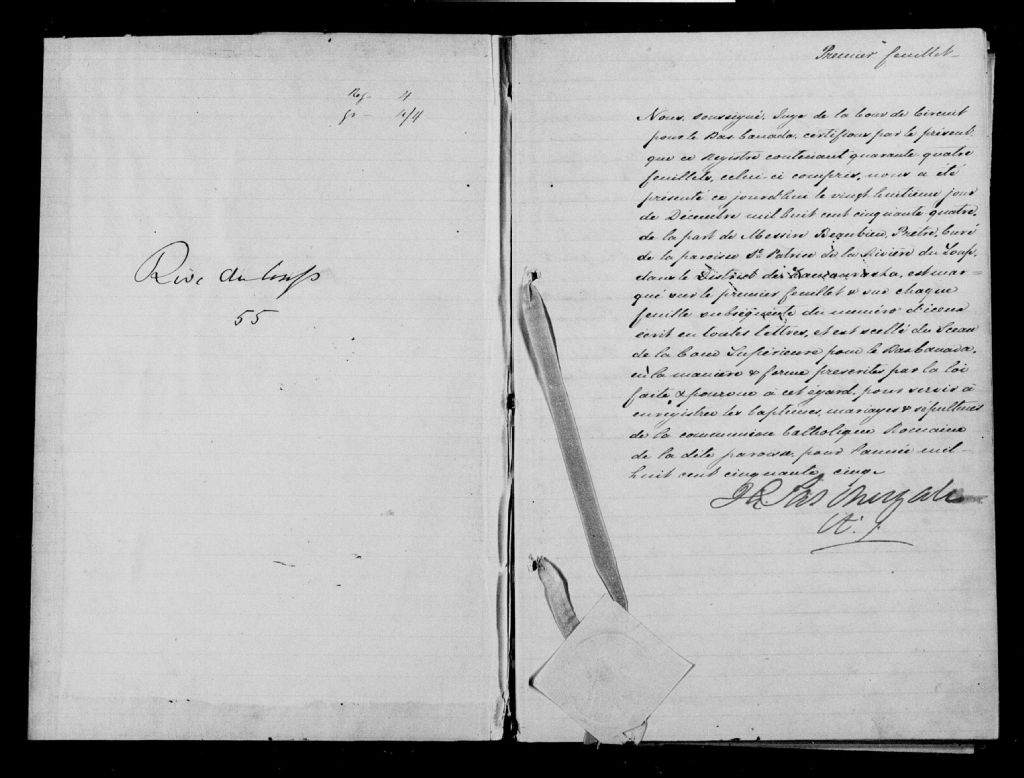 Reg. 4
gr - 4/4
Riv. du loup
55
Premier feuillet
Nous, soussigné, Juge de la Cour de Circuit
pour le Bas Canada, certifions par le présent,
que ce Registre contenant quarante quatre
feuillets, celui-ci compris, nous a été
présenté ce jourd'hui le vingt huitième jour
de Décembre mil huit cent cinquante quatre,
de la part de Messire Beaubien, Prêtre, Curé
de la paroisse St. Patrice de la Rivière du Loup,
dans le District de Kamouraska, est mar-
qué sur le premier feuillet & sur chaque
feuille subséquente du numéro d'iceux
écrit en toutes lettres, et est scellé du Sceau
de la Cour Supérieure pour le Bas Canada,
en la manière & forme prescrites par la loi
faite & pourvue à cet égard, pour servir à
enregistrer les baptêmes, mariages & sépultures
de la communion Catholique Romaine
de la dite paroisse, pour l'année mil-
huit cent cinquante cinq.